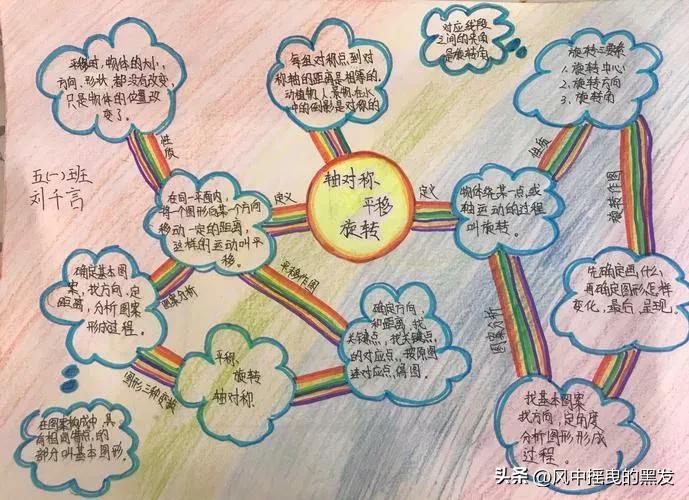 平移时,物体的大小,
方向、形状、都没有改变,
只是物体的位置改
变了。
每组对称点到对
称轴的距离是相等的。
动植物、人、景物在水
中的倒影是对称的
对应线段
之间的夹角
是旋转角
旋转三要素
1、旋转中心
2、旋转方向
3、旋转角
五(一)班
刘千言
性质
在同一平面内,
将一个图形向某一个方向
移动一定的距离,
这样的运动叫平
移。
定义
轴对称、
平移
旋转
定义
物体绕某一点,或
轴运动的过程
叫旋转。
性质
旋转作图
确定基本图
案,找方向,定
距离,分析图案
形成过程。
图案分析
平移作图
确定方向,
和距离,找
关键点,找关键点,
的对应点,按原图
连对应点,得图。
图案分析
先确定画什么,
再确定图形怎样
变化,最后,呈现。
图形三种变换
平移、
旋转
轴对称
在图案构成中,具
有相同特点,的
部分叫基本图形。
找基本图案
找方向,定角度
分析图形形成
过程。
头条 @风中摇曳的黑发